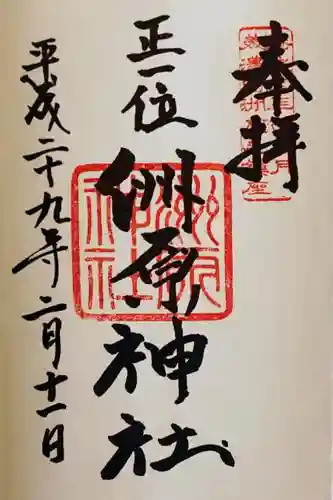 奉拝
正一位
洲原神社
平成二十九年二月十一日